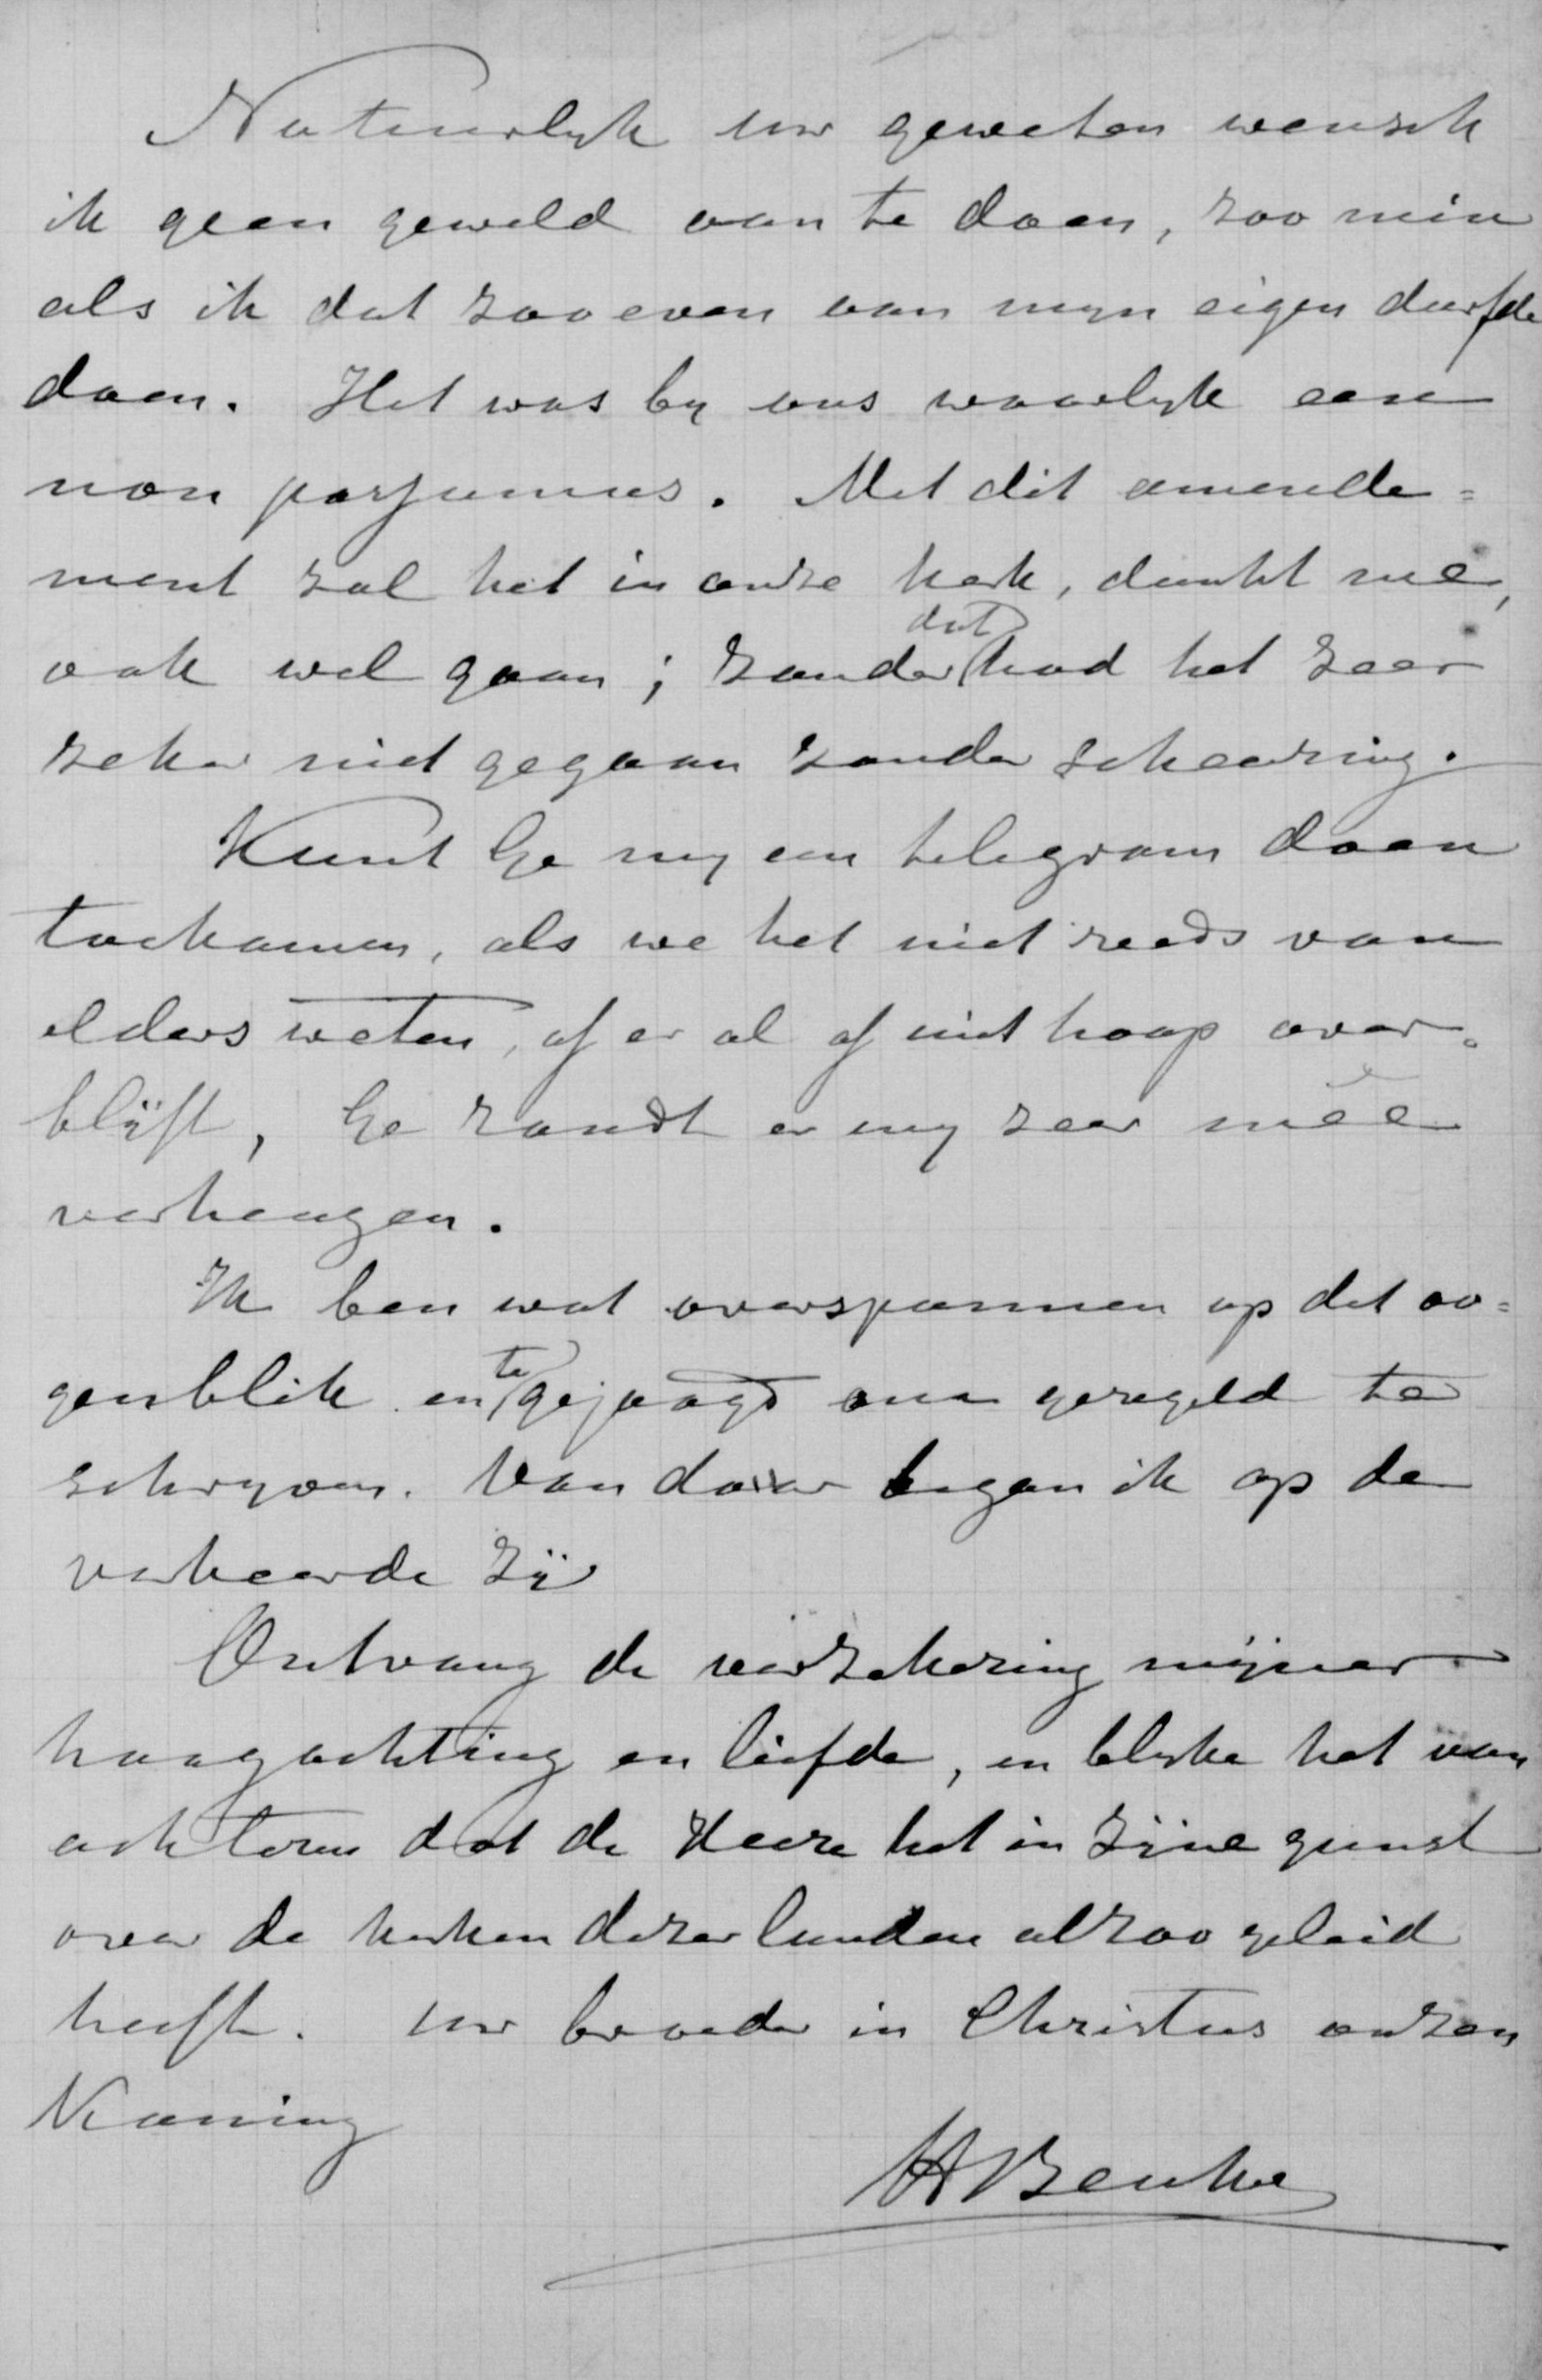 Natuurlyk uw geweten wensch
ik geen geweld aan te doen, zoo min
als ik dat zooeven aan myn eigen durfde
doen. Het was by ons waarlyk een
non possumus. Met dit amende=
ment zal het in onze kerk, dunkt me,
ook wel gaan; zonder dat had het zeer
zeker niet gegaan zonder scheuring.
Kunt Ge my een telegram doen
toekomen, als we het niet reeds van
elders weten, of er al of niet hoop over=
blijft, Ge zoudt er my zeer meê
verheugen.
Ik ben wat overspannen op dit oo=
genblik en te gejaagd om geregeld te
schryven. Van daar began ik op de
verkeerde zij
Ontvang de verzekering mijner
hoogachting en liefde, en blyke het van
achteren dat de Heere het in Zijne gunst
over de kerken dezer landen alzoo geleid
heeft. Uw broeder in Christus onzen
Koning
H Beuker